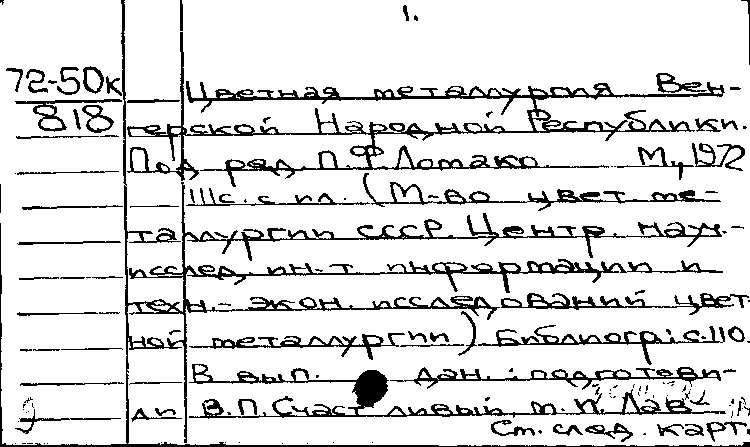 1.
72-50к Цветная металлургия Вен-
818 герской Народной Республики.
Под ред. П.Ф Ломако М., 1972
111с. с ил. (М-во цвет ме-
таллургии СССР. Центр. науч.-
исслед. ин-т информации и
техн.- экон. исследований цвет
ной металлургии) Библиогр: с.110.
В вып. дан.: подготови-
ли В.П. Счастливый, т. п. Лав-
См. след. карт.